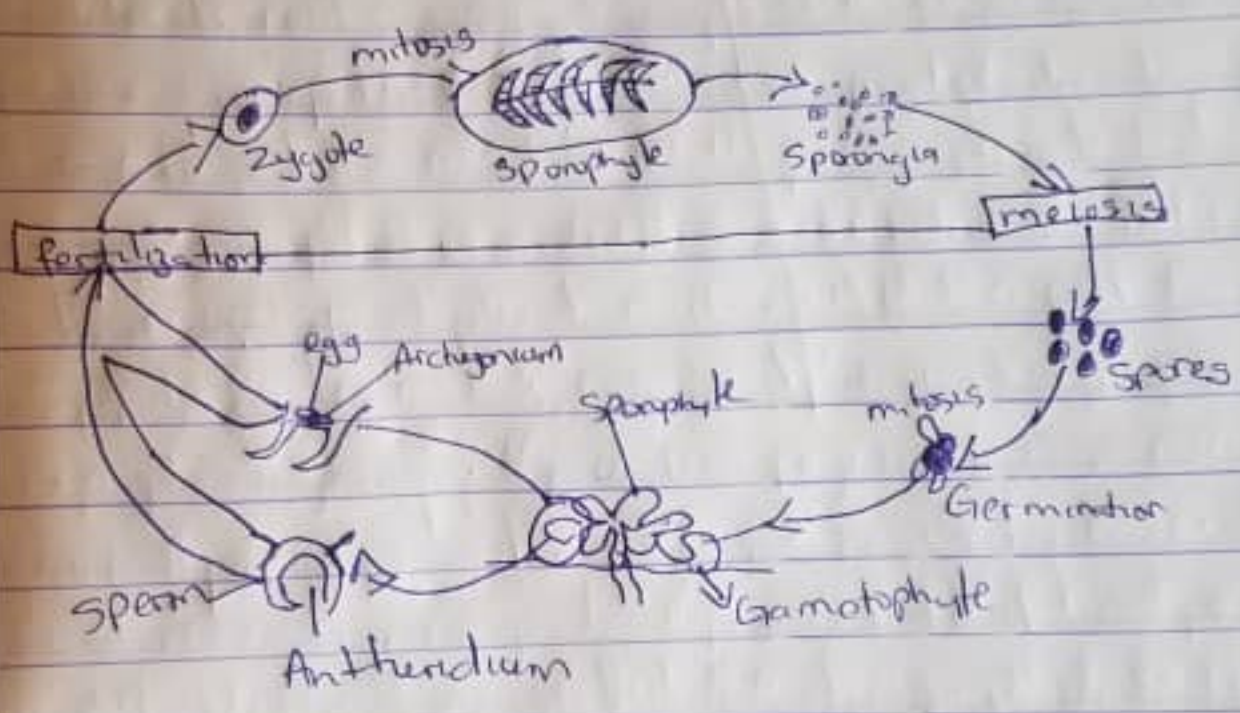 mitosis
Zygote
Sporophyte
Sporangia
meiosis
fertilization
egg
Archegonium
Sporophyte
mitosis
Spores
Germination
Gametophyte
Sperm
Antheridium